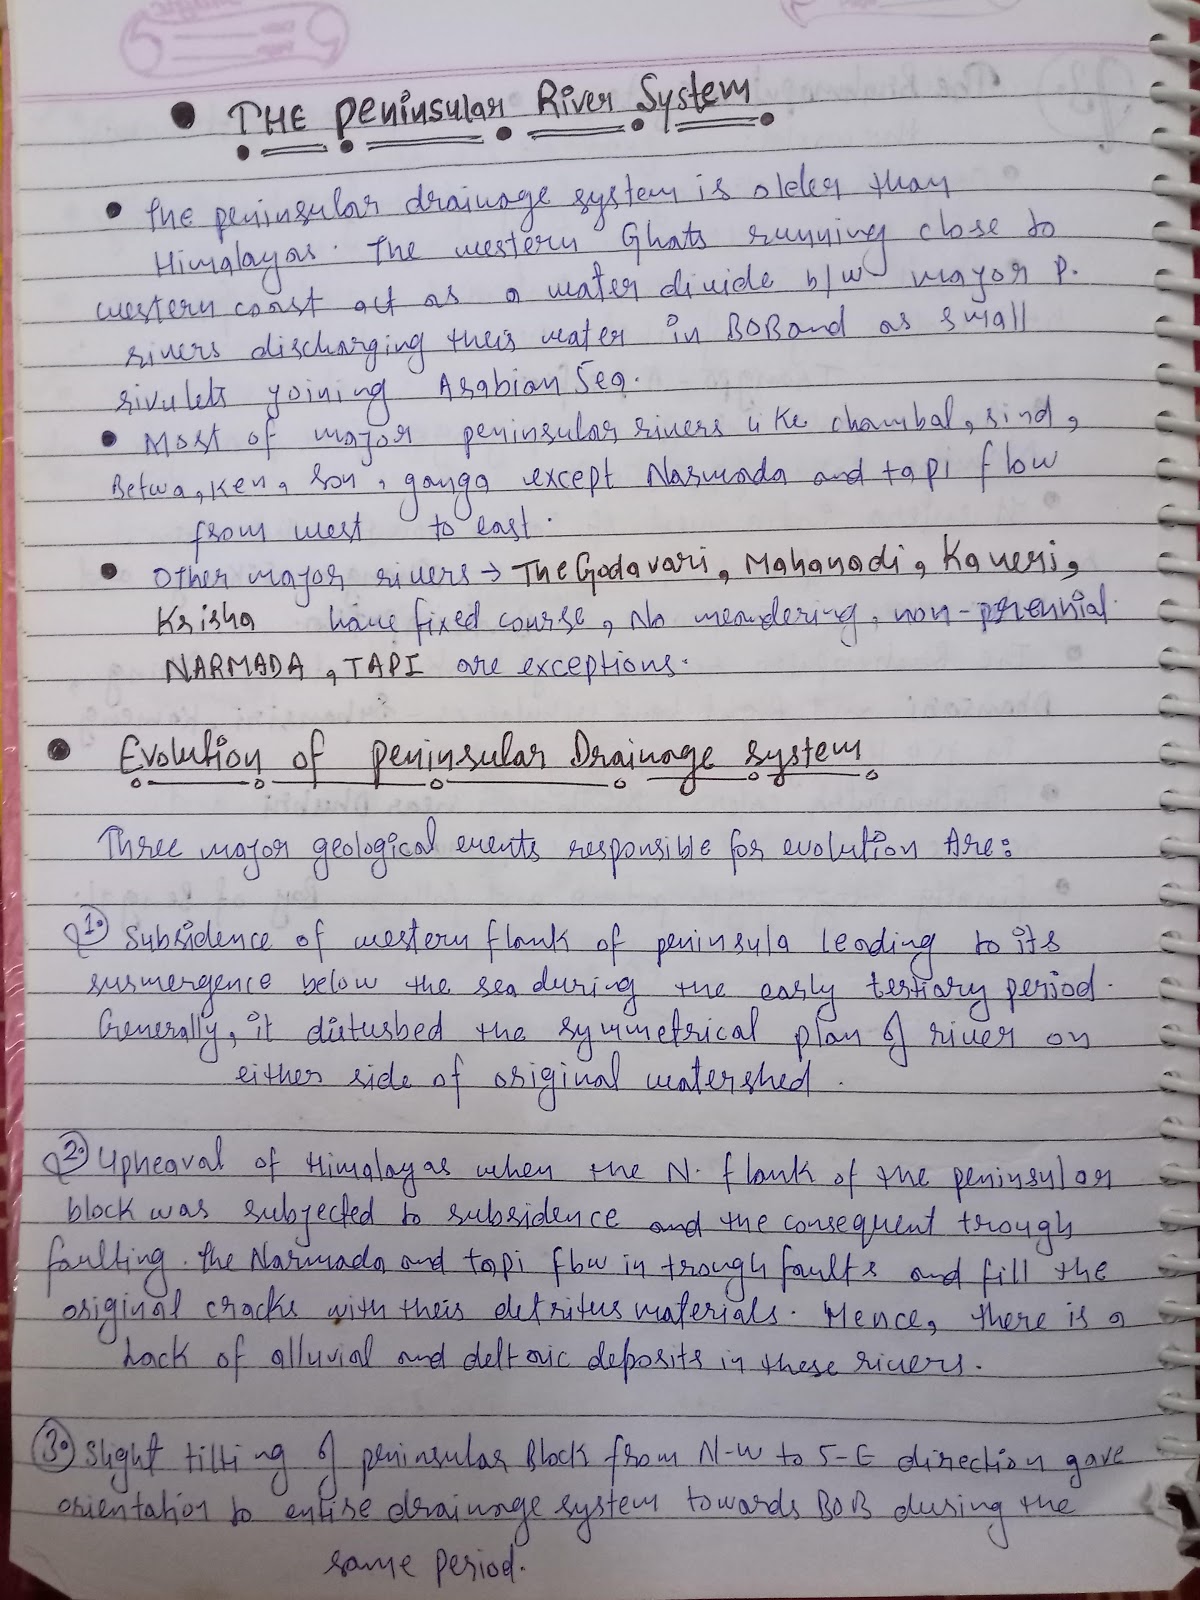 THE Peninsular River System
The peninsular drainage system is older than
Himalayas. The western Ghats running close to
western coast act as a water divide b/w major P.
rivers discharging their water in BOB and as small
rivulets joining Arabian Sea.
Most of major peninsular rivers like chambal, sind,
Betwa, Ken, Son, ganga except Narmada and tapi flow
from west to east.
Other major rivers → The Godavari, Mahanadi, Kaveri,
Krisha have fixed course, No meandering, non-perennial.
NARMADA, TAPI are exceptions.
Evolution of peninsular Drainage system
Three major geological events responsible for evolution Are:
1. Subsidence of western flank of peninsula leading to its
susmergence below the sea during the early tertiary period.
Generally, it disturbed the symmetrical plan of river on
either side of original watershed.
2. Upheaval of Himalayas when the N. flank of the peninsular
block was subjected to subsidence and the consequent trough
faulting. The Narmada and tapi flow in trough faults and fill the
original cracks with their detritus materials. Hence, there is a
Lack of alluvial and deltaic deposits in these rivers.
3. Slight tilting of peninsular Block from N-W to S-E direction gave
orientation to entire drainage system towards BOB during the
same period.